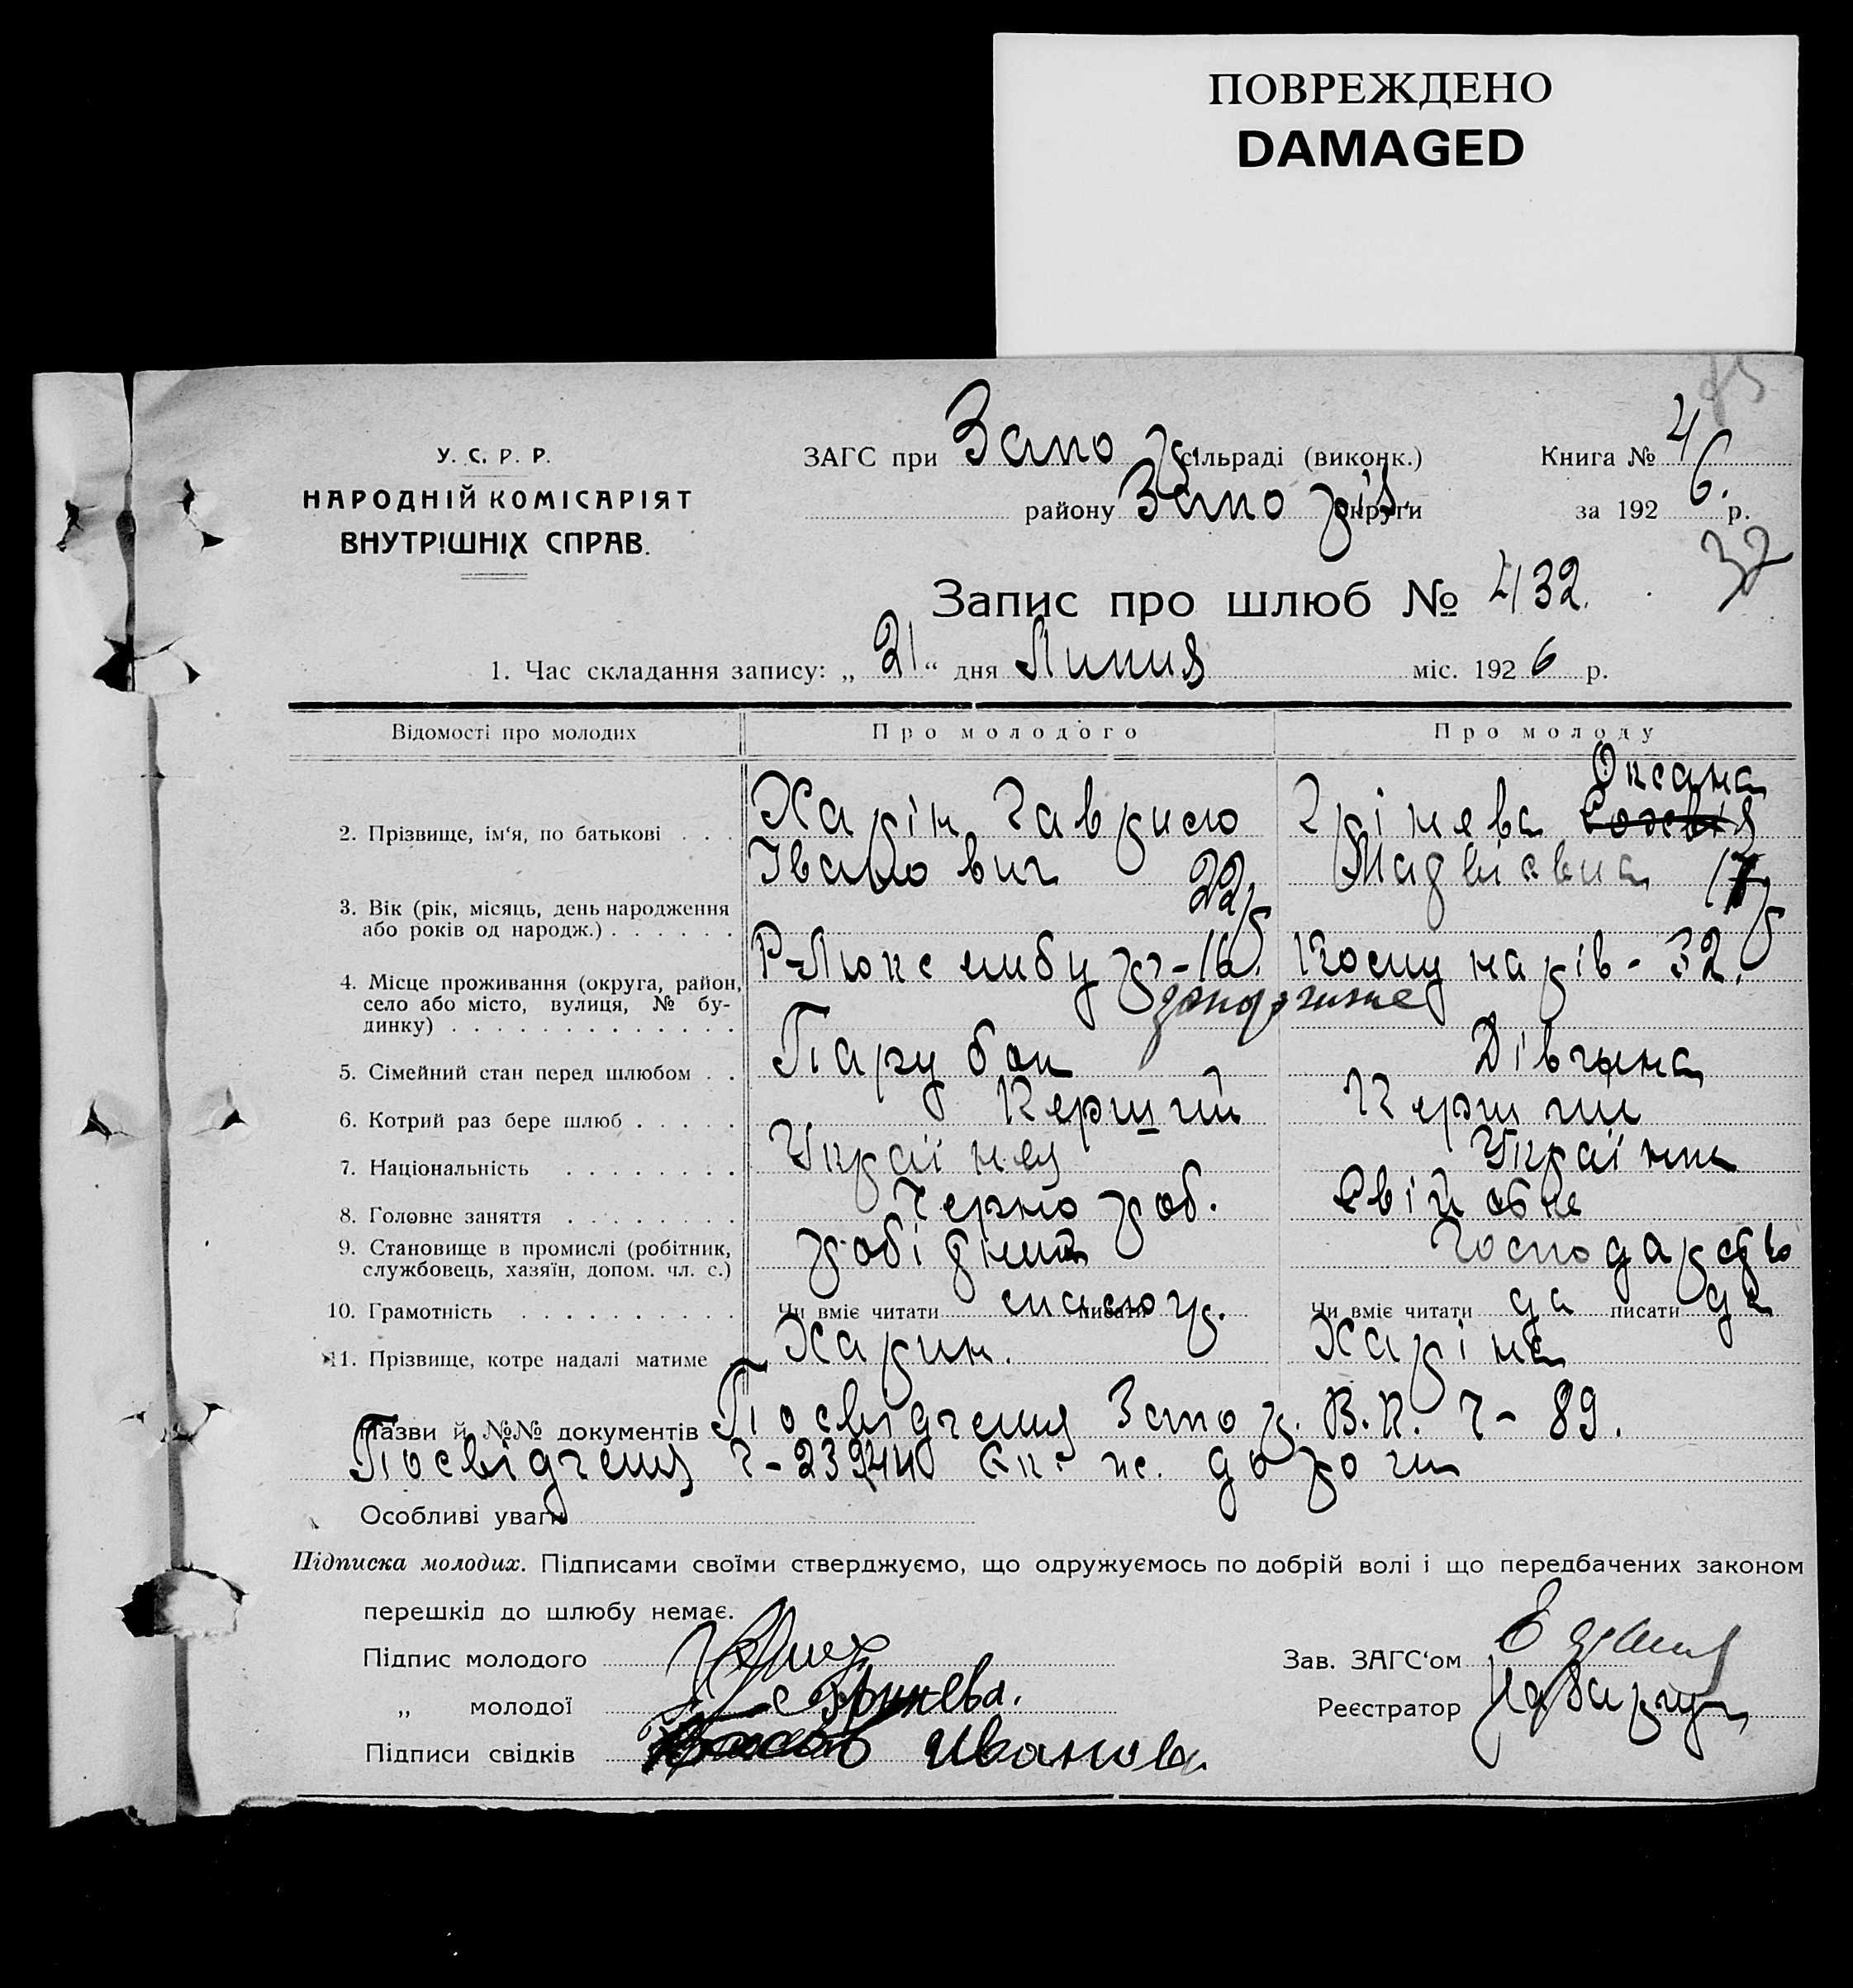 ПОВРЕЖДЕНО
DAMAGED
У. С. Р. Р.
НАРОДНІЙ КОМІСАРІЯТ
ВНУТРІШНІХ СПРАВ.
ЗАГС при Запор. сільраді (виконк.)
району Запоріз. округи
Книга № 4
за 1926. р.
32
Запис про шлюб № 432.
1. Час складання запису: „21“ дня Липня міс. 1926 р.
Відомості про молодих
Про молодого
Про молоду
2. Прізвище, ім‘я, по батькові . . .
Харін Гаврило
Іванович
Грінева Оксана
Мадвієвна
3. Вік (рік, місяць, день народження
або років од народж.) . . . . . .
22р
17р
4. Місце проживання (округа, район,
село або місто, вулиця, № бу-
динку) . . . . . . . . . . . . .
Р-Люксембург-16.
Комунарів-32.
запорожже
5. Сімейний стан перед шлюбом . .
Парубок
Дівчина
6. Котрий раз бере шлюб . . . . .
Перший
Перший
7. Національність . . . . . . . .
Українец
Українка
8. Головне заняття . . . . . . . .
Чернороб.
9. Становище в промислі (робітник,
службовець, хазяїн, допом. чл. с.)
робітник
Господарство
10. Грамотність . . . . . . . . . .
Чи вміє читати писати
Чи вміє читати да писати да
11. Прізвище, котре надалі матиме
Харин.
Харіна
Назви й №№ документів Посвідчення Запор. В.К. Ч-89.
Посвідчення Ч-23944 Єк. же. дороги
Особливі уваги
Підписка молодих. Підписами своїми стверджуємо, що одружуємось по добрій волі і що передбачених законом
перешкід до шлюбу немає.
Підпис молодого
„ молодої Гринева.
Підписи свідків Иванова
Зав. ЗАГС‘ом
Реєстратор